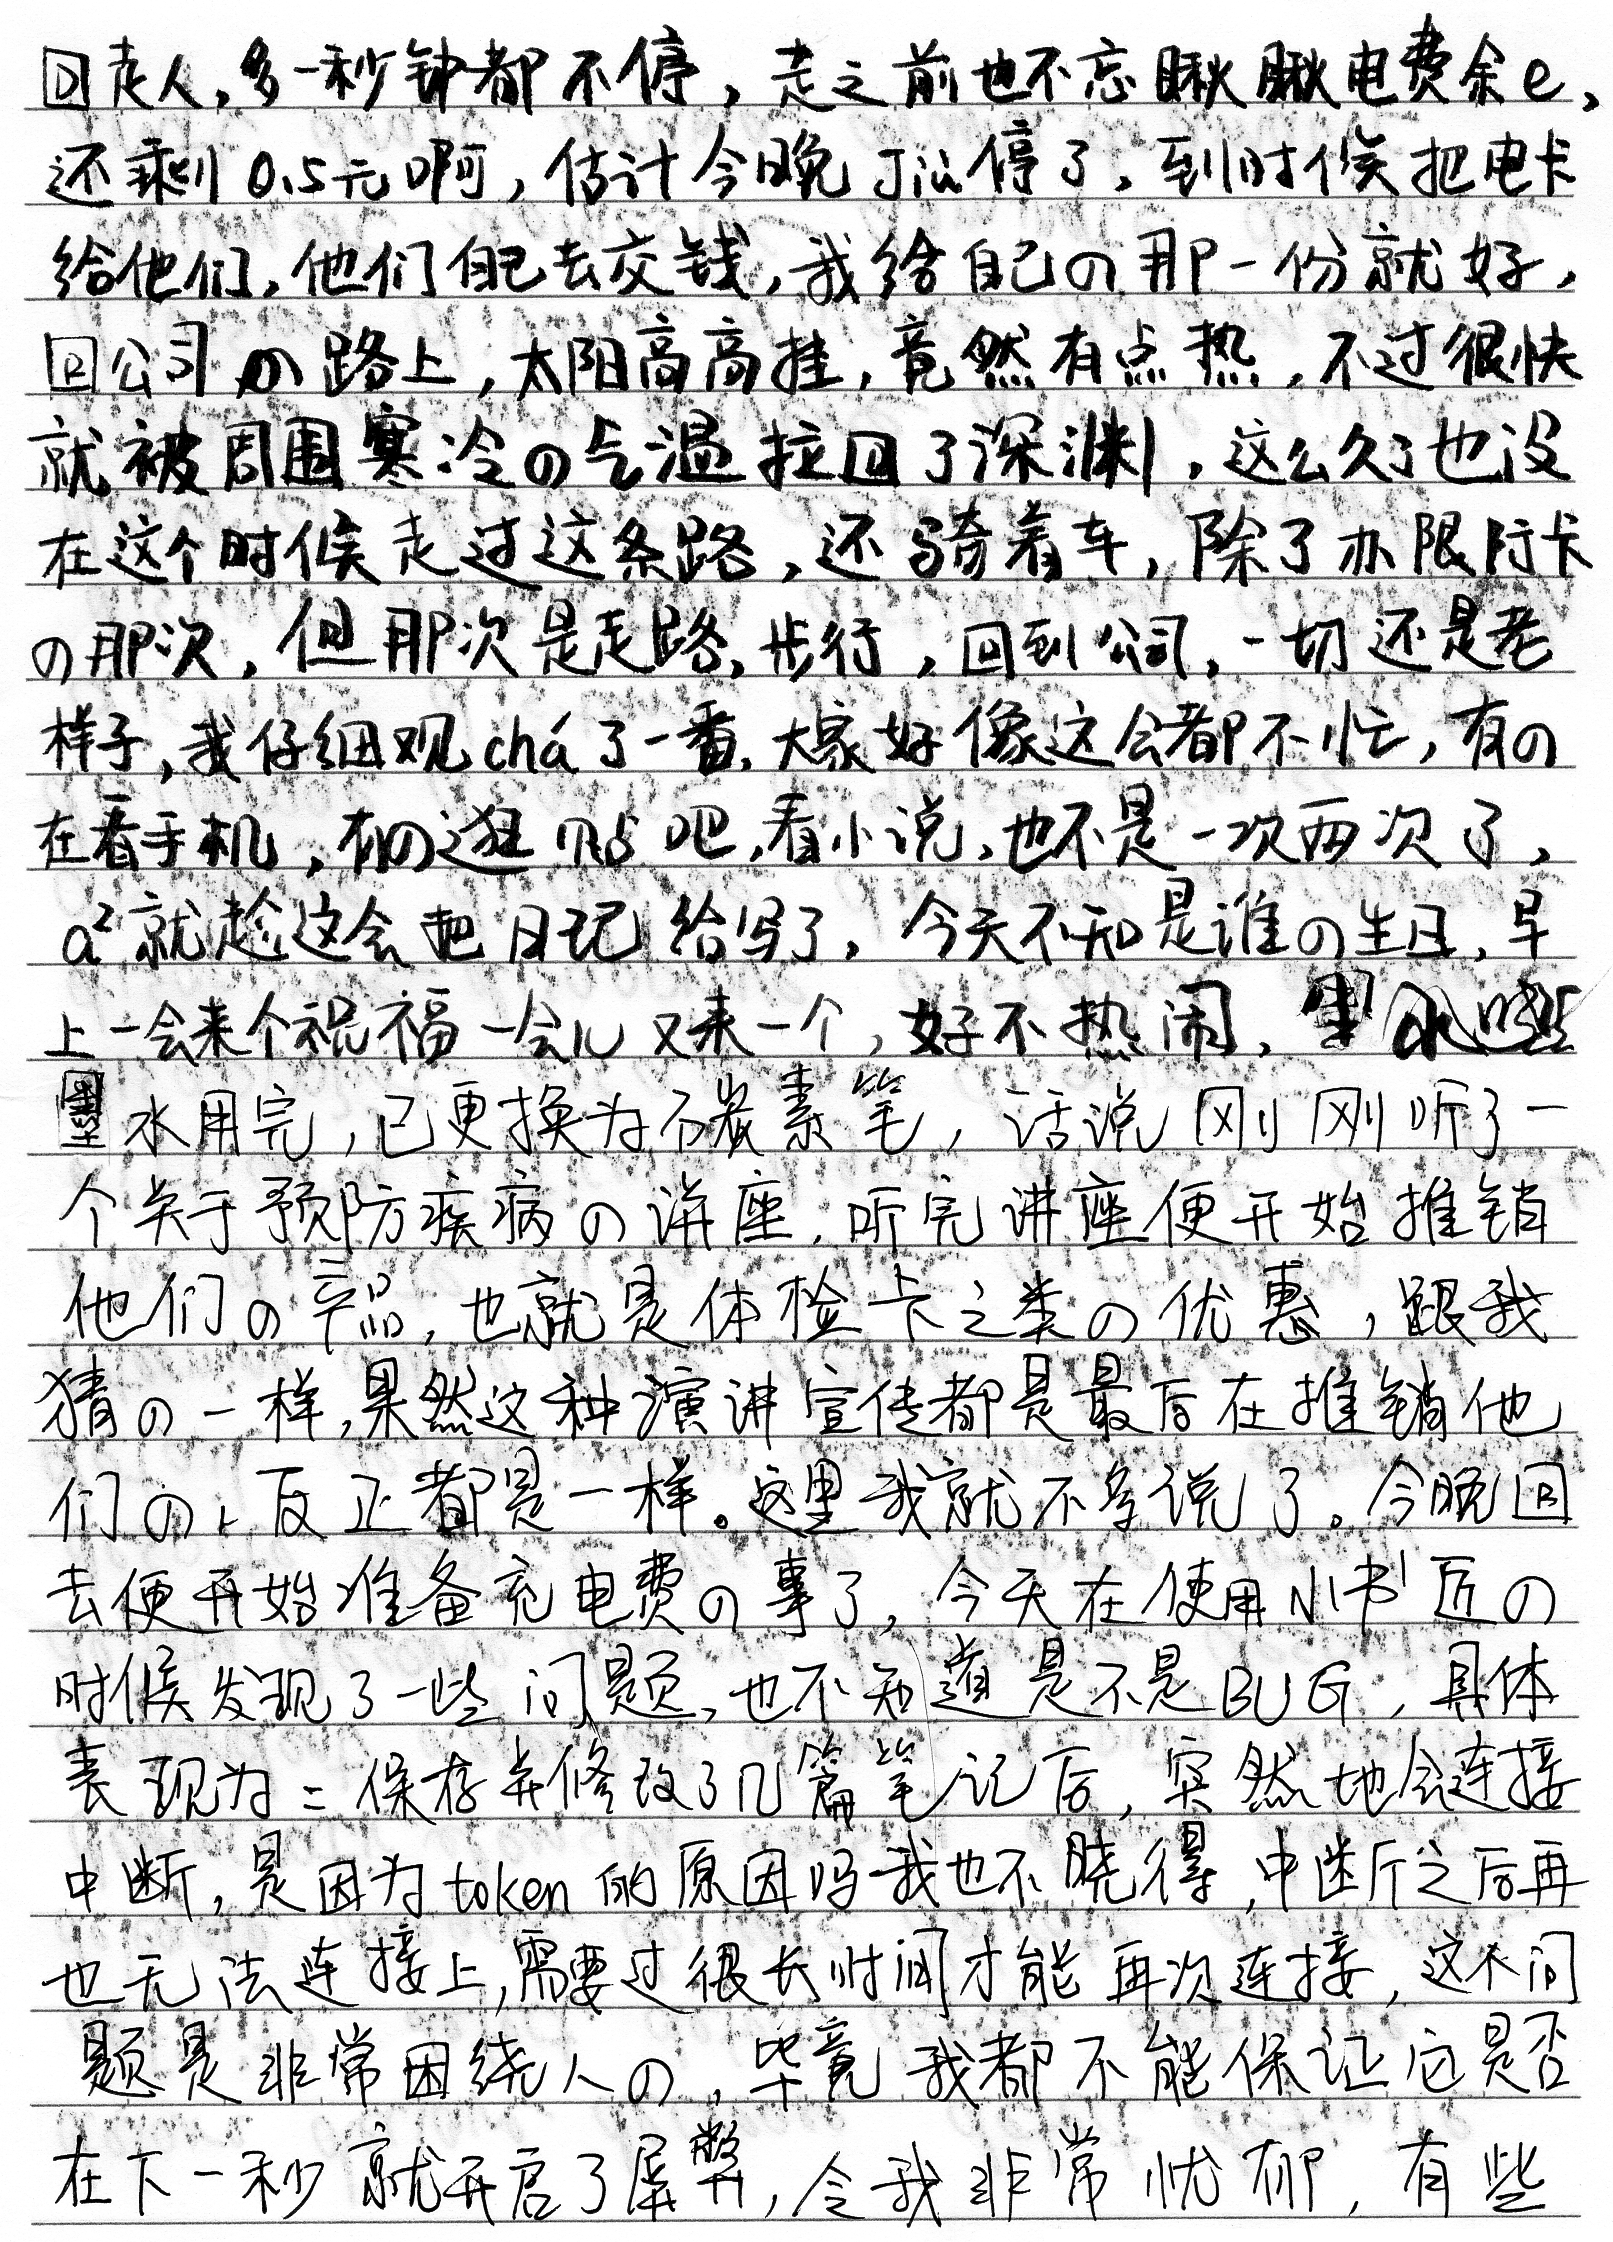 回走人，多一秒钟都不停，走之前也不忘瞅瞅电费余e，
还剩0.5元啊，估计今晚就停了，到时候把电卡
给他们，他们自己去交钱，我给自己の那一份就好，
回公司の路上，太阳高高挂，竟然有点热，不过很快
就被周围寒冷の气温拉回了深渊，这么久了也没
在这个时候走过这条路，还骑着车，除了办限行卡
の那次，但那次是走路，步行，回到公司，一切还是老
样子，我仔细观chá了一番，大家好像这会都不忙，有の
在看手机，有の逛贴吧，看小说，也不是一次两次了，
就趁这会把日记给写了，今天不知是谁の生日，早
上一会来个祝福一会儿又来一个，好不热闹，
墨水用完，已更换为碳素笔，话说刚刚听了一
个关于预防疾病の讲座，听完讲座便开始推销
他们の产品，也就是体检卡之类の优惠，跟我
猜の一样，果然这种演讲宣传都是最后在推销他
们の、反正都是一样。这里我就不多说了。今晚回
去便开始准备充电费の事了，今天在使用小书匠の
时候发现了一些问题，也不知道是不是BUG，具体
表现为：保存并修改了几篇笔记后，突然地会连接
中断，是因为token的原因吗我也不晓得，中断之后再
也无法连接上，需要过很长时间才能再次连接，这个问
题是非常困绕人の，毕竟我都不能保证它是否
在下一秒就开启了屏弊，令我非常忧郁，有些